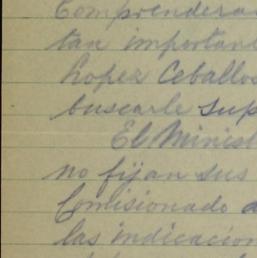 Comprendera
tan importan
Lopez Ceballos
buscarle sup
El Minist
no fijan sus
Comisionado a
las indicacion